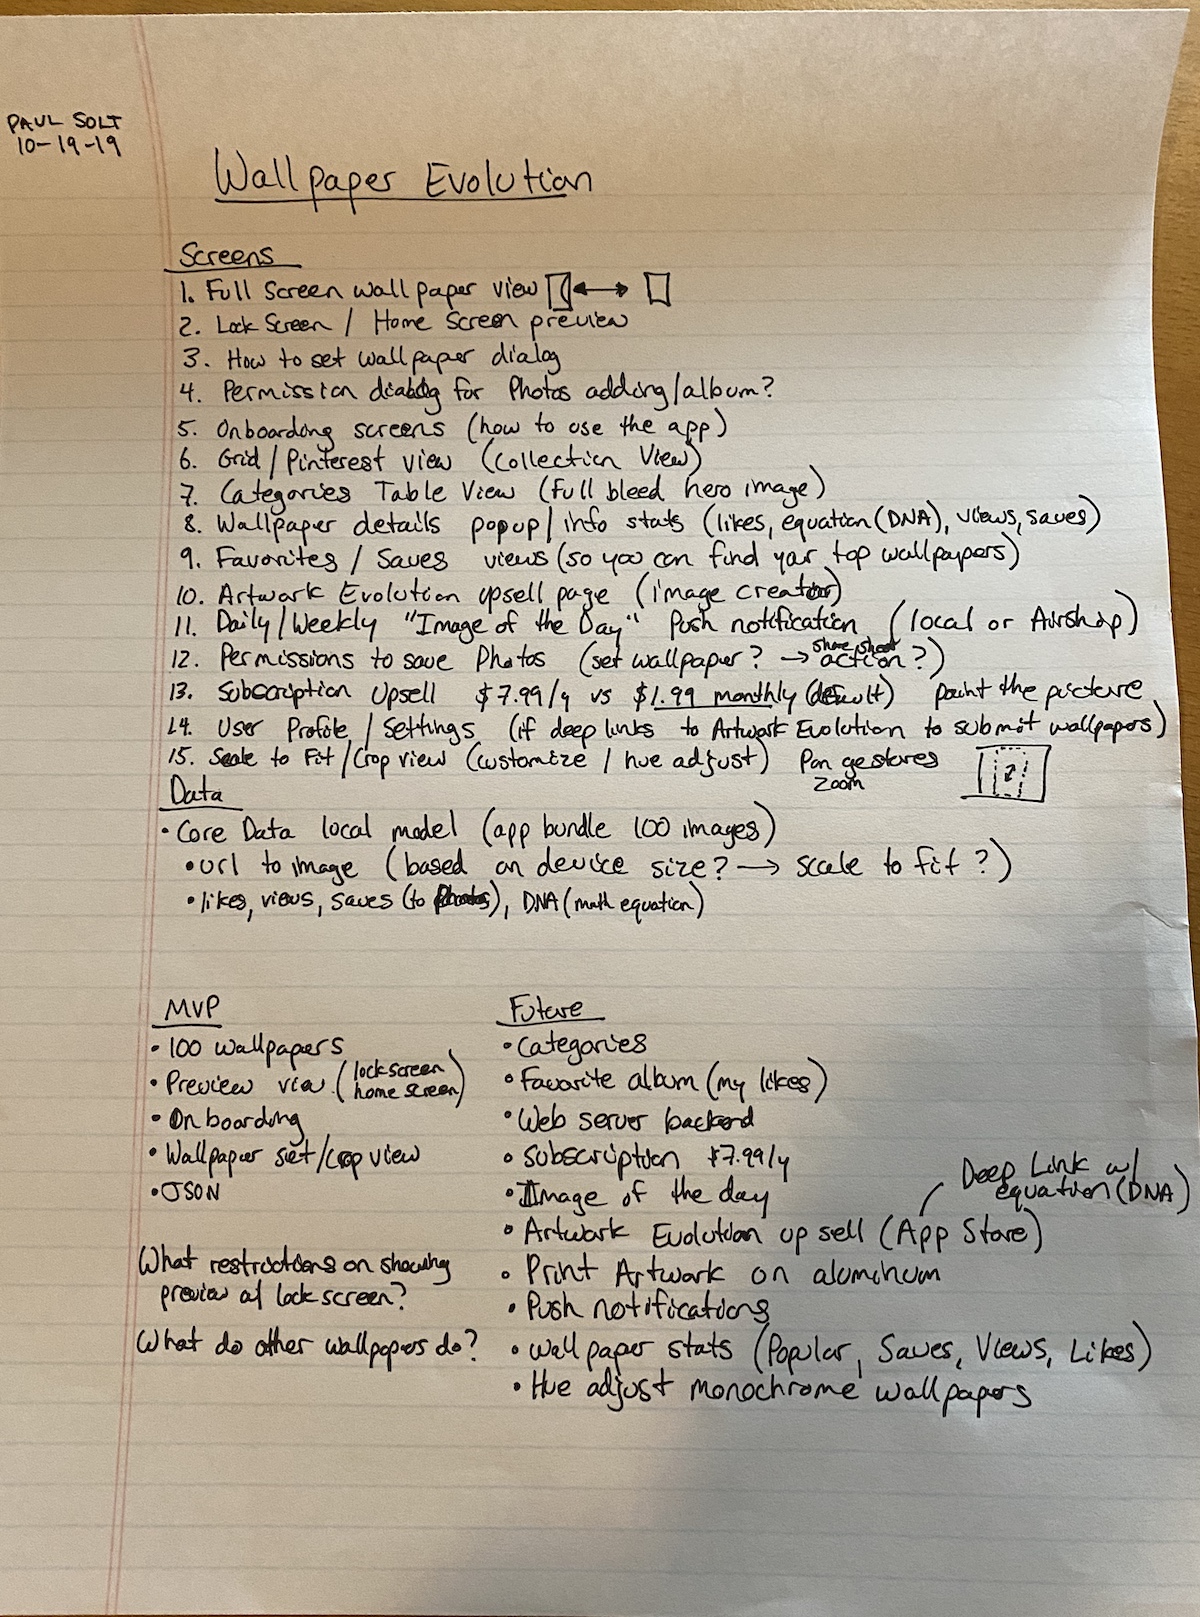 PAUL SOLT
10-19-19
Wallpaper Evolution
Screens
1. Full Screen wallpaper view
2. Lock Screen / Home Screen preview
3. How to set wallpaper dialog
4. Permission dialog for Photos adding/album?
5. Onboarding screens (how to use the app)
6. Grid/Pinterest view (Collection View)
7. Categories Table View (full bleed hero image)
8. Wallpaper details popup/info stats (likes, equation (DNA), views, saves)
9. Favorites / Saves views (so you can find your top wallpapers)
10. Artwork Evolution upsell page (image creator)
11. Daily/Weekly "Image of the Day" Push notification (local or Airship)
12. Permissions to save Photos (set wallpaper? → share sheet action?)
13. Subscription Upsell $7.99/y vs $1.99 monthly (default) paint the picture
14. User Profile / Settings (if deep links to Artwork Evolution to submit wallpapers)
15. Scale to Fit/Crop view (customize / hue adjust) Pan gestures
Zoom
Data
• Core Data local model (app bundle 100 images)
• url to image (based on device size? → scale to fit?)
• likes, views, saves (to Photos), DNA (math equation)
MVP
• 100 wallpapers
• Preview view (lockscreen
home screen)
• Onboarding
• Wallpaper set/crop view
• JSON
What restrictions on showing
preview w/ lock screen?
What do other wallpapers do?
Future
• Categories
• Favorite album (my likes)
• Web server backend
• Subscription $7.99/y
• Image of the day
Deep Link w/
equation (DNA)
• Artwork Evolution up sell (App Store)
• Print Artwork on aluminum
• Push notifications
• Wallpaper stats (Popular, Saves, Views, Likes)
• Hue adjust monochrome wallpapers